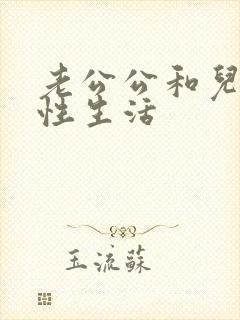 老公公和兒
性生活
玉流蘇